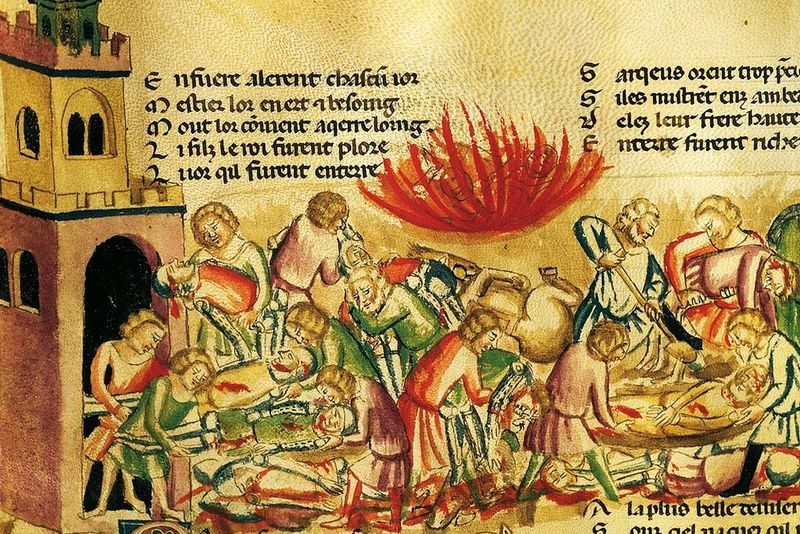 E nfuere alerent chascũ ior
M estier lor en ert ⁊ besoing
M out lor cõuient a q̃rre loing
L i filz le roi furent plore
L uor qil furent enterre
S arqeus orent trop
S iles mistrẽt enz
V elez leur frere haute
E nterre furent riche
A la plus belle
S